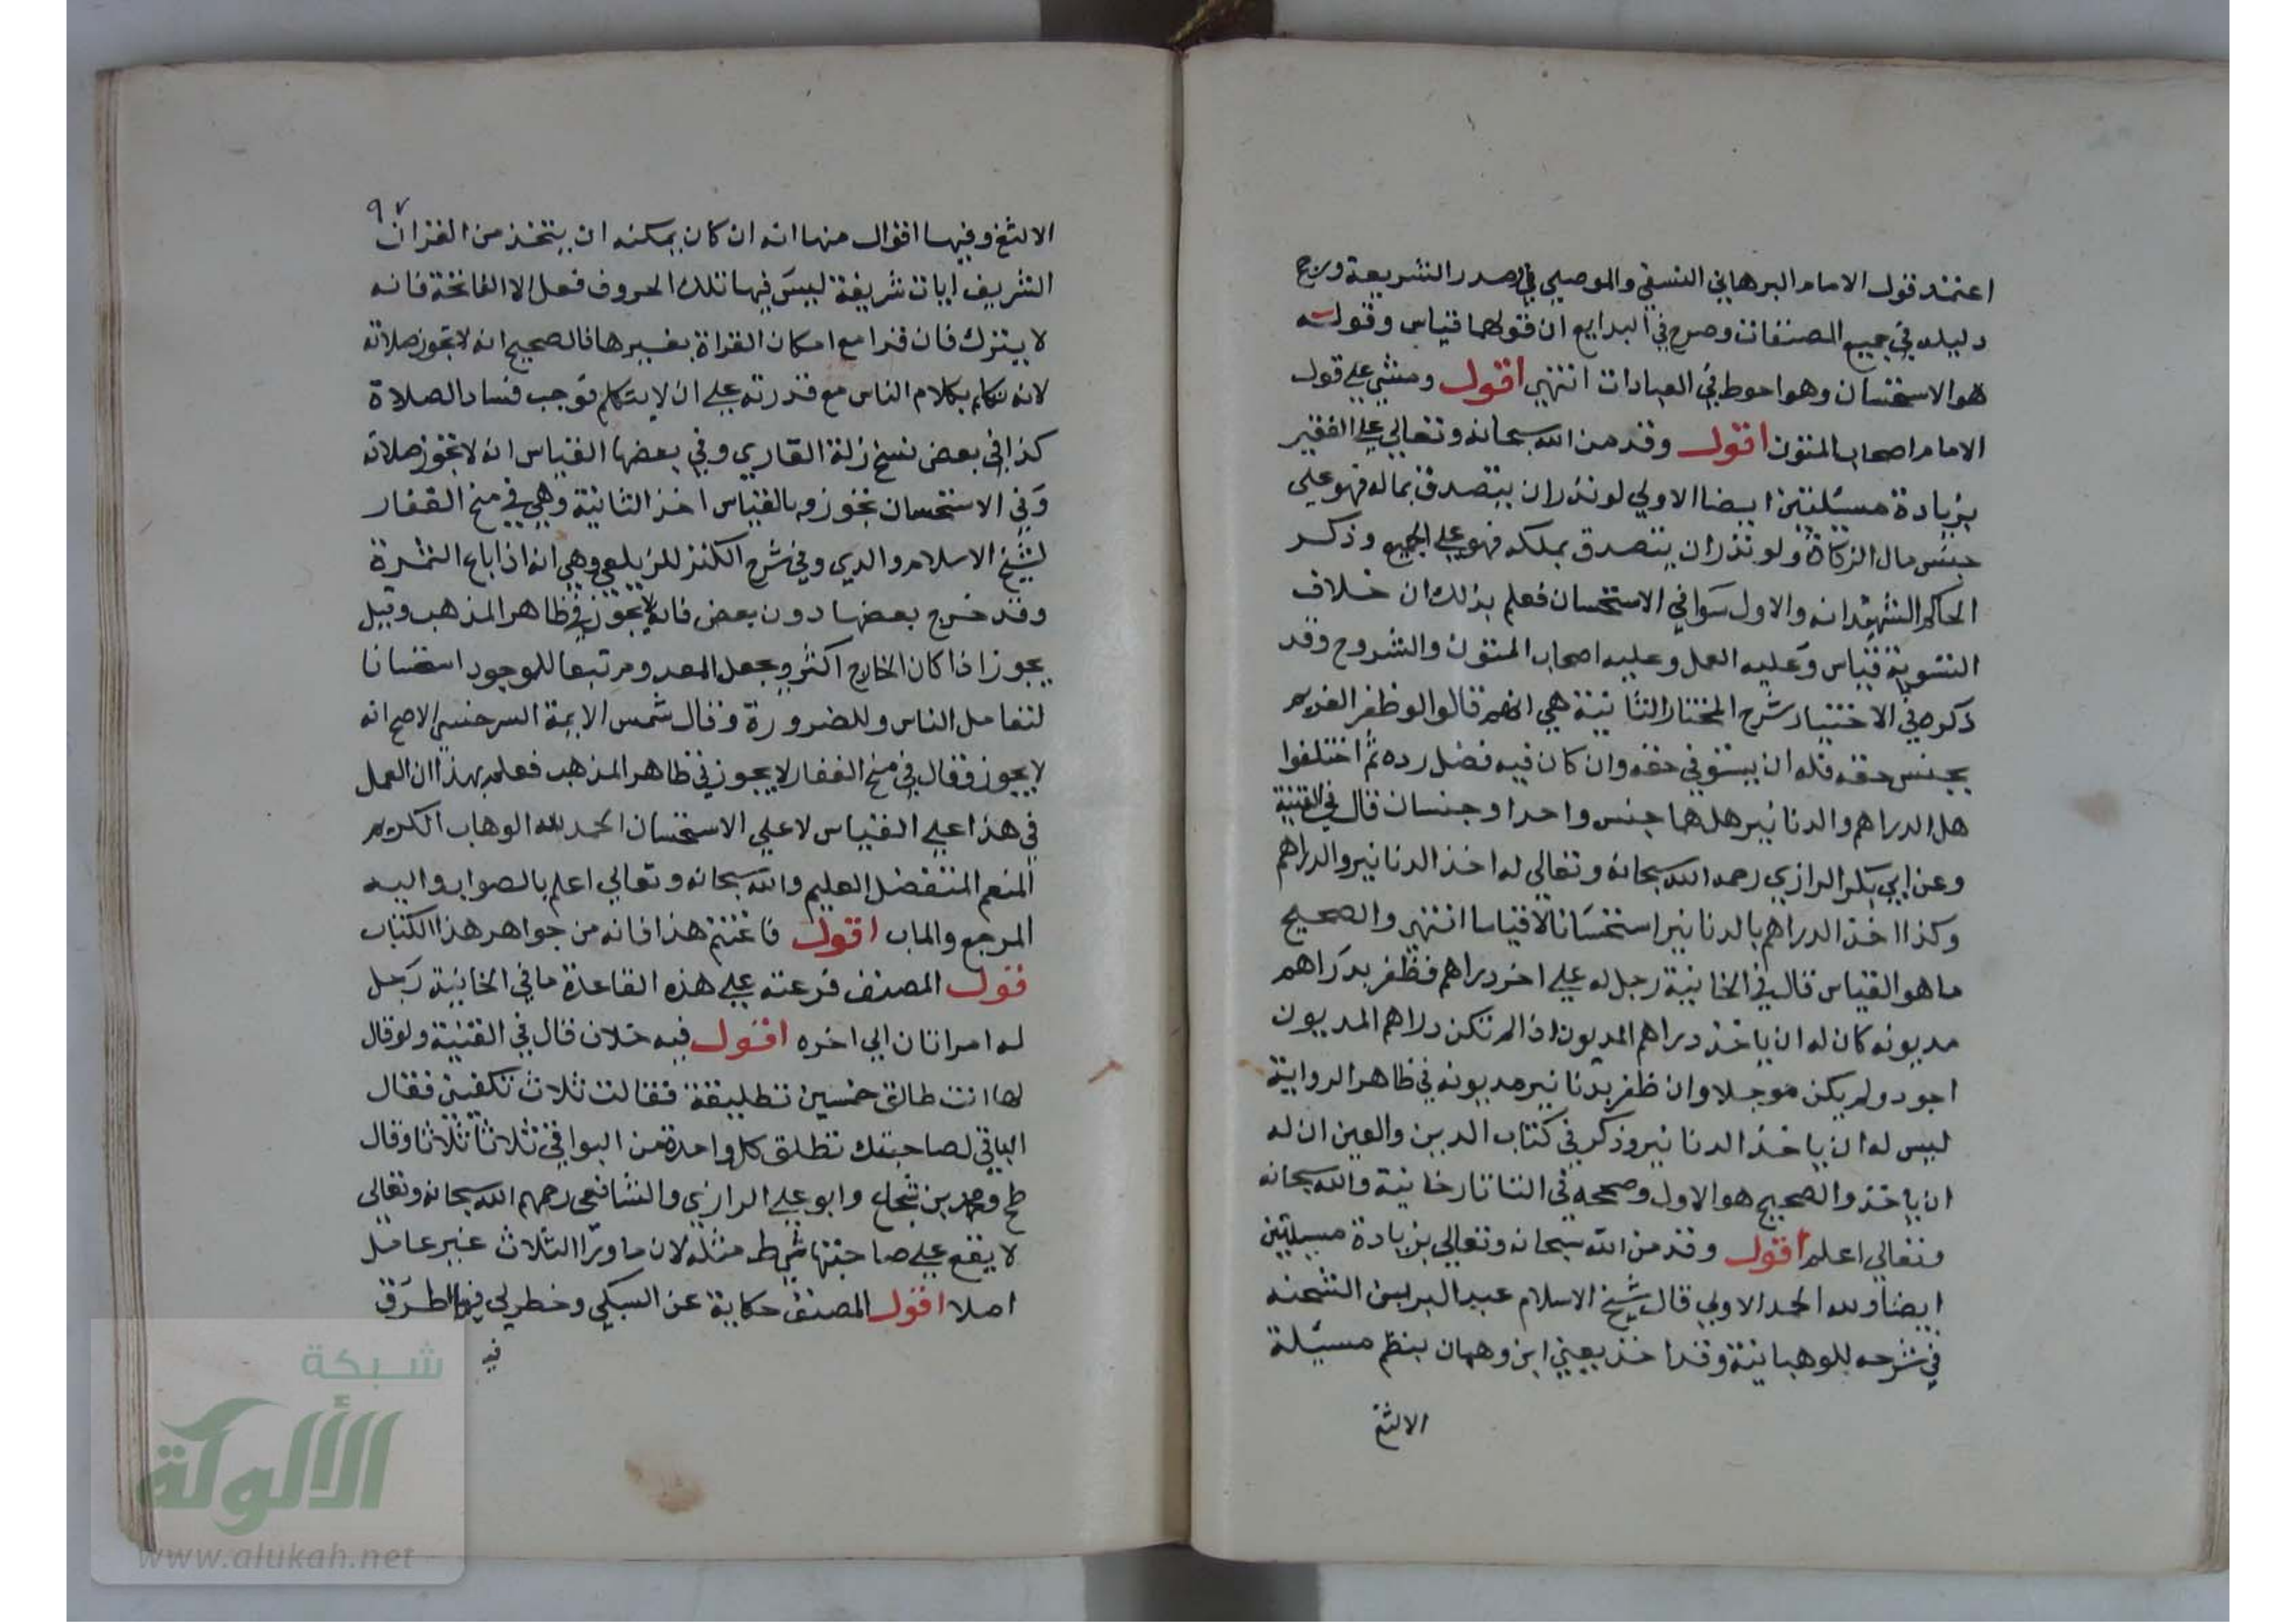 اعتمد قول الامام البرهاني النسفي والموصلي في صدر الشريعة ورجح
دليله في جميع المصنفات وصرح في البدايع ان قولهما قياس وقوله
هو الاستحسان وهو احوط في العبادات انتهي اقول ومشي علي قول
الامام اصحاب المتون اقول وقد من الله سبحانه وتعالي علي الفقير
بزيادة مسئلتين ايضا الاولي لو نذر ان يتصدق بماله فهو علي
جنس مال الزكاة ولو نذر ان يتصدق بملكه فهو علي الجميع وذكر
الحاكم الشهيد انه والاول سوا في الاستحسان فعلم بذلك ان خلاف
التسوية قياس وعليه العمل وعليه اصحاب المتون والشروح وقد
ذكره في الاختيار شرح المختار الثانية هي انهم قالوا لو ظفر الغريم
بجنس حقه فله ان يستوفي حقه وان كان فيه فضل رده ثم اختلفوا
هل الدراهم والدنانير هل هما جنس واحد او جنسان قال في القنية
وعن ابي بكر الرازي رحمه الله سبحانه وتعالي له اخذ الدنانير والدراهم
وكذا اخذ الدراهم بالدنانير استحسانا لا قياسا انتهي والصحيح
ما هو القياس قال في الخانية رجل له علي اخر دراهم فظفر بدراهم
مديونه كان له ان ياخذ دراهم المديون اذا لم تكن دراهم المديون
اجود ولم يكن موجلا وان ظفر بدنانير مديونه في ظاهر الرواية
ليس له ان ياخذ الدنانير وذكر في كتاب الدين والعين ان له
ان ياخذ والصحيح هو الاول وصححه في التاتارخانية والله سبحانه
وتعالي اعلم اقول وقد من الله سبحانه وتعالي بزيادة مسيلتين
ايضا ولله الحمد الاولي قال شيخ الاسلام عبد البر بن الشحنه
في شرحه للوهبانية وقد اخذ يعني ابن وهبان بنظم مسيلة
الالثغ
٩٧
الالثغ وفيها اقوال منها انه ان كان يمكنه ان يتخذ من القران
الشريف ايات شريفة ليس فيها تلك الحروف فعل الا الفاتحة فانه
لا يترك فان قرا مع امكان القراة بغيرها فالصحيح انه لا تجوز صلاته
لانه تكلم بكلام الناس مع قدرته علي ان لا يتكلم فوجب فساد الصلاة
كذا في بعض نسخ زلة القاري وفي بعضها القياس انه لا تجوز صلاته
وفي الاستحسان تجوز وبالقياس اخذ الثانية وهي في منح الغفار
لشيخ الاسلام والدي وفي شرح الكنز للزيلعي وهي انه اذا باع الثمرة
وقد خرج بعضها دون بعض فانه لا يجوز في ظاهر المذهب وقيل
يجوز اذا كان الخارج اكثر ويجعل المعدوم تبعا للموجود استحسانا
لتعامل الناس وللضرورة وقال شمس الايمة السرخسي الاصح انه
لا يجوز وقال في منح الغفار لا يجوز في ظاهر المذهب فعلم بهذا ان العمل
في هذا علي القياس لا علي الاستحسان الحمد لله الوهاب الكريم
المنعم المتفضل العليم والله سبحانه وتعالي اعلم بالصواب واليه
المرجع والماب اقول فاغتنم هذا فانه من جواهر هذا الكتاب
قول المصنف فرعته علي هذه القاعدة ما في الخانية رجل
له امراتان الي اخره اقول فيه خلاف قال في القنية ولو قال
لها انت طالق خمسين تطليقة فقالت ثلاث تكفيني فقال
الباقي لصاحبتك تطلق كل واحدة من البواقي ثلاثا ثلاثا وقال
طح ومحمد بن شجاع وابو علي الرازي والشافعي رحمهم الله سبحانه وتعالي
لا يقع علي صاحبتها مثله لان ما ورا الثلاث غير عامل
اصلا اقول المصنف حكاية عن السبكي وخطر لي فيها الطرق
فيه
شبكة
الألوكة
www.alukah.net